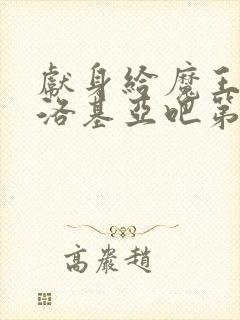 獻身給魔王
洛基亞吧第
高嚴趙